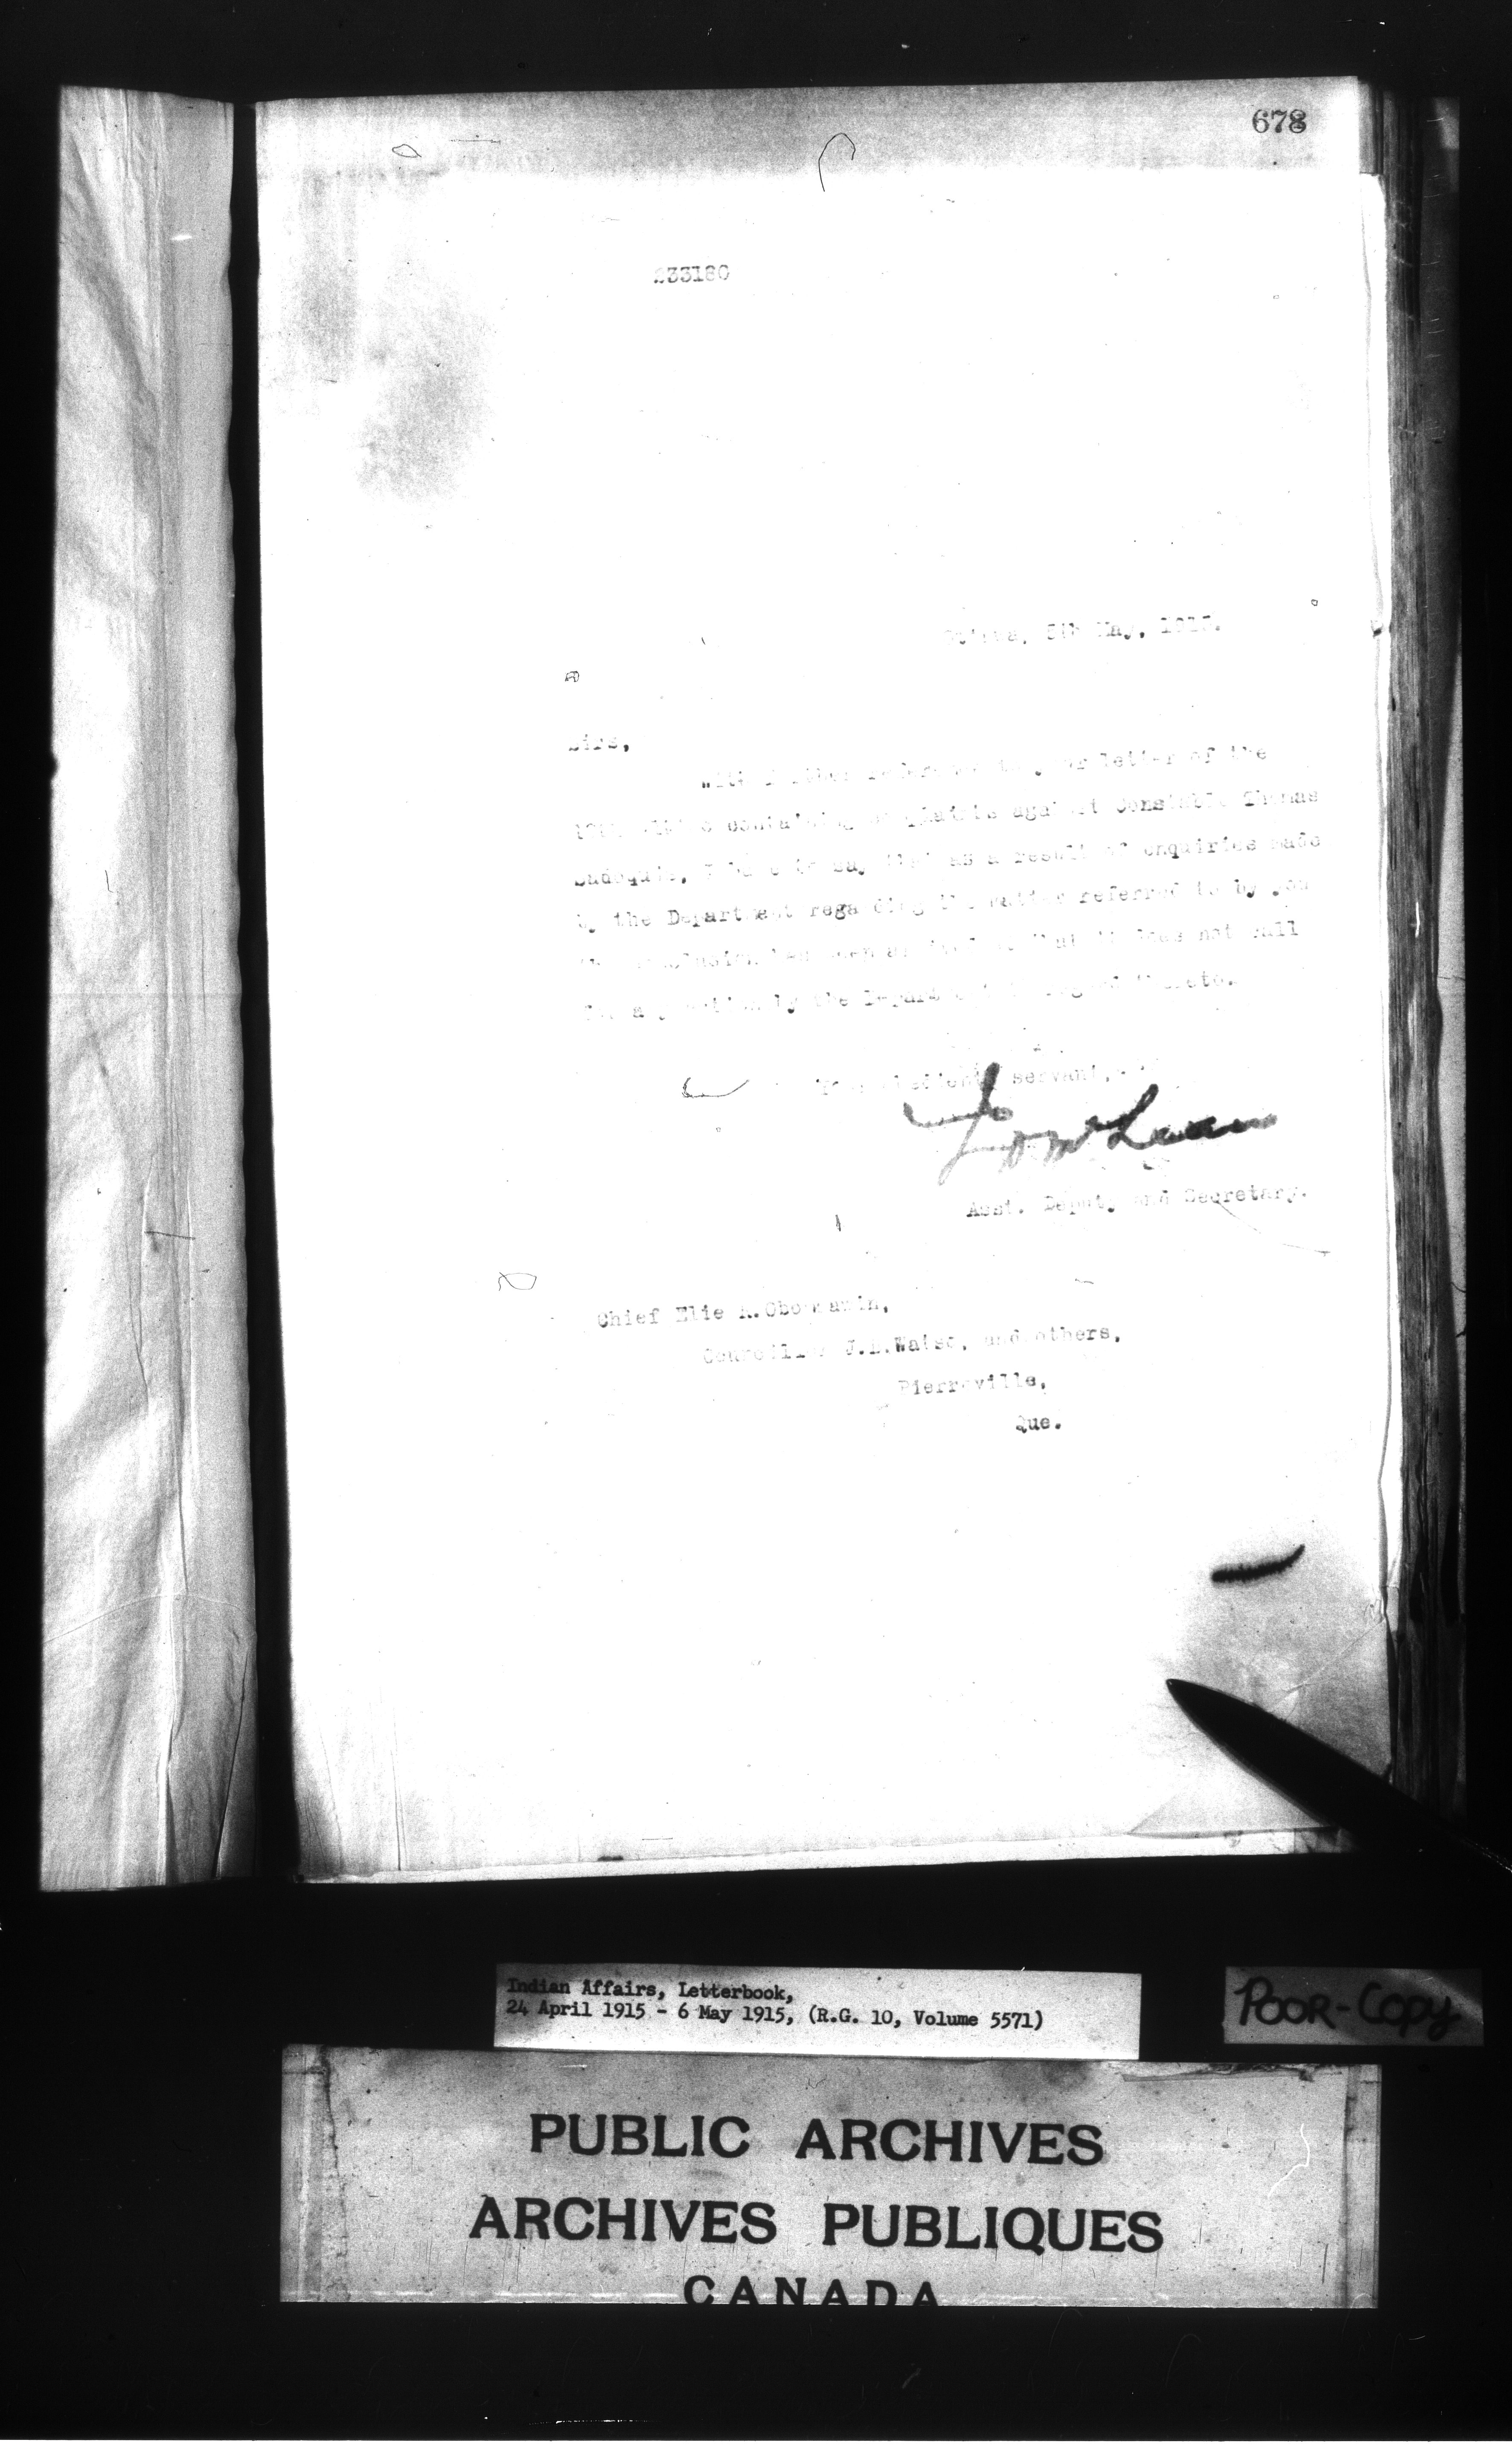 678
233180
Ottawa, 5th May, 1915.
Sirs,
With further reference to your letter of the
containing complaints against Constable Thomas
I have to say that as a result of enquiries made
by the Department regarding the matter referred to by you
the conclusion has been arrived at that it does not call
for any action by the Department in regard thereto.
Your obedient servant,
J D McLean
Asst. Deputy and Secretary.
Chief Elie
Councillor J. and others,
Pierreville,
Que.
Indian Affairs, Letterbook,
24 April 1915 - 6 May 1915, (R.G. 10, Volume 5571)
POOR-COPY
PUBLIC ARCHIVES
ARCHIVES PUBLIQUES
CANADA